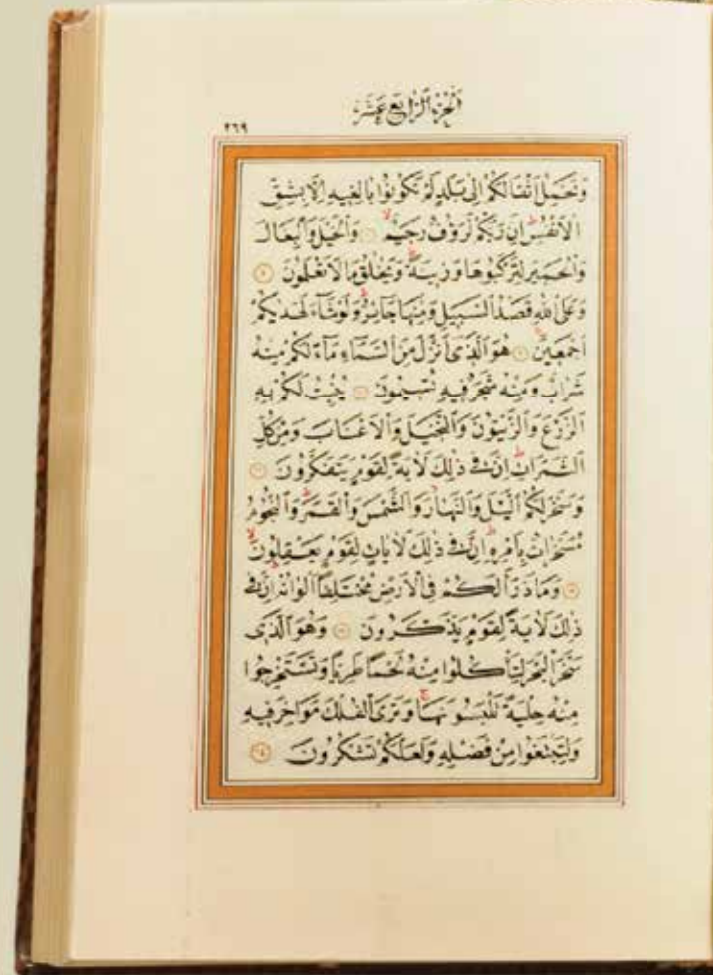 الجزء الرابع عشر
٢٦٩
وَتَحْمِلُ اَثْقَالَكُمْ اِلٰى بَلَدٍ لَمْ تَكُونُوا بَالِغِيهِ اِلَّا بِشِقِّ
الْاَنْفُسِ اِنَّ رَبَّكُمْ لَرَؤُفٌ رَحِيمٌ ۙ وَالْخَيْلَ وَالْبِغَالَ
وَالْحَمِيرَ لِتَرْكَبُوهَا وَزِينَةً وَيَخْلُقُ مَا لَا تَعْلَمُونَ ٨
وَعَلَى اللّٰهِ قَصْدُ السَّبِيلِ وَمِنْهَا جَائِرٌ وَلَوْ شَاءَ لَهَدٰيكُمْ
اَجْمَعِينَ ٩ هُوَ الَّذِى اَنْزَلَ مِنَ السَّمَاءِ مَاءً لَكُمْ مِنْهُ
شَرَابٌ وَمِنْهُ شَجَرٌ فِيهِ تُسِيمُونَ ١٠ يُنْبِتُ لَكُمْ بِهِ
الزَّرْعَ وَالزَّيْتُونَ وَالنَّخِيلَ وَالْاَعْنَابَ وَمِنْ كُلِّ
الثَّمَرَاتِ اِنَّ فِى ذٰلِكَ لَاٰيَةً لِقَوْمٍ يَتَفَكَّرُونَ ١١
وَسَخَّرَ لَكُمُ الَّيْلَ وَالنَّهَارَ وَالشَّمْسَ وَالْقَمَرَ وَالنُّجُومُ
مُسَخَّرَاتٌ بِاَمْرِهِ اِنَّ فِى ذٰلِكَ لَاٰيَاتٍ لِقَوْمٍ يَعْقِلُونَ ۙ
١٢ وَمَا ذَرَاَ لَكُمْ فِى الْاَرْضِ مُخْتَلِفًا اَلْوَانُهُ اِنَّ فِى
ذٰلِكَ لَاٰيَةً لِقَوْمٍ يَذَّكَّرُونَ ١٣ وَهُوَ الَّذِى
سَخَّرَ الْبَحْرَ لِتَاْكُلُوا مِنْهُ لَحْمًا طَرِيًّا وَتَسْتَخْرِجُوا
مِنْهُ حِلْيَةً تَلْبَسُونَهَا ۚ وَتَرَى الْفُلْكَ مَوَاخِرَ فِيهِ
وَلِتَبْتَغُوا مِنْ فَضْلِهِ وَلَعَلَّكُمْ تَشْكُرُونَ ١٤